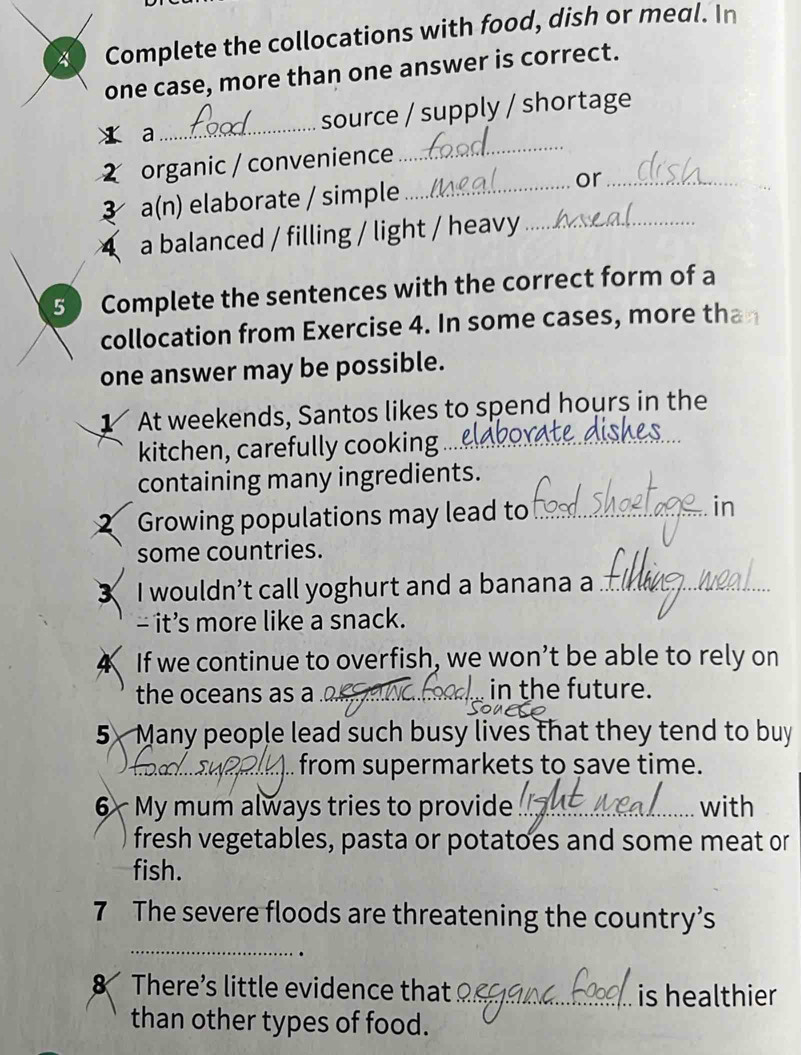 4 Complete the collocations with food, dish or meal. In
one case, more than one answer is correct.
1 a food source / supply / shortage
2 organic / convenience food
3 a(n) elaborate / simple meal or dish
4 a balanced / filling / light / heavy meal
5 Complete the sentences with the correct form of a
collocation from Exercise 4. In some cases, more than
one answer may be possible.
1 At weekends, Santos likes to spend hours in the
kitchen, carefully cooking elaborate dishes
containing many ingredients.
2 Growing populations may lead to food shoetage in
some countries.
3 I wouldn't call yoghurt and a banana a filling meal
– it's more like a snack.
4 If we continue to overfish, we won't be able to rely on
the oceans as a oeganc food in the future.
souece
5 Many people lead such busy lives that they tend to buy
food supply from supermarkets to save time.
6 My mum always tries to provide light meal with
fresh vegetables, pasta or potatoes and some meat or
fish.
7 The severe floods are threatening the country's
.
8 There's little evidence that oeganc food is healthier
than other types of food.